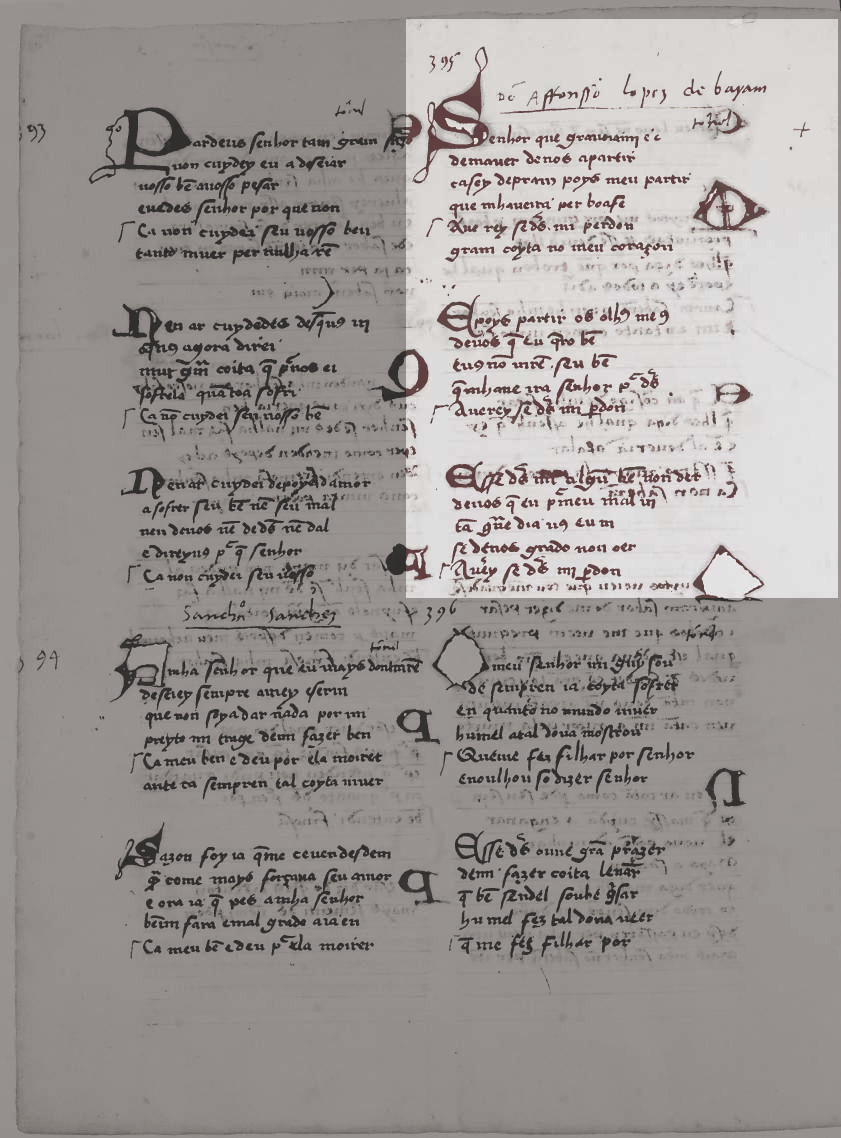 393
tornel
Pardeus senhor tam gram
non cuydey eu a deseiar
uosso bē auosso pesar
euedes senhor por que non
Ca non cuydei seu uosso ben
tanto uiuer per nulha rē
Nen ar cuydedes
agora direi
coita q̄
Ca nō cuydei seu uosso bē
Nen ar cuydei depoys damor
a sofrer seu bē nē seu mal
nen deuos nē deds̄ nē dal
e direyuꝯ p̄ q̄ senhor
Ca non cuydei seu uosso
Sancho Sanchez
394
tornel
Mha senhor que eu mays
deseiey sempre amey e seruí
que non soya dar nada por mi
preyto mi trage demi fazer ben
Ca meu ben e deu por ela moirer
ante ca sempren tal coyta uiuer
Sazon foy ia q̄me
come mays forçaua seu amor
e ora ia q̄ pes a mha senhor
bēmi fara emal grado aia en
Ca meu bē e deu p̄ ela moirer
395
Dō Affonsso lopez de bayam
tornel
Senhor que grauoiami e é
demauer deuos a partir
casey depram poys meu partir
que mhauerra per boa fe
Auerey se ds̄ mi perdon
gram coyta no meu corazon
E poys partir os olhꝯ meꝯ
deuos q̄ eu q̄ro bē
euꝯ nō uirē seu bē
q̄mhauerra senhor p̄ ds̄
Auerey se ds̄ mi p̄don
E sse ds̄ mi algū bē non der
deuos q̄ eu p̄ meu mal ui
tā g̃ue dia uꝯ eu ui
se deuos grado non oer
Auey se ds̄ mi p̄don
396
tornel
O meu senhor mi
de sempren ia coyta sofrer
en quanto no mundo uiuer
hu mel atal dona mostrou
Queme fez filhar por senhor
enoulhou so dizer senhor
E sse ds̄ ouue grā prazer
demi fazer coita leuar
q̄ bē sendel soube g̃sar
hu mel fez tal dona ueer
q̄ me fez filhar por